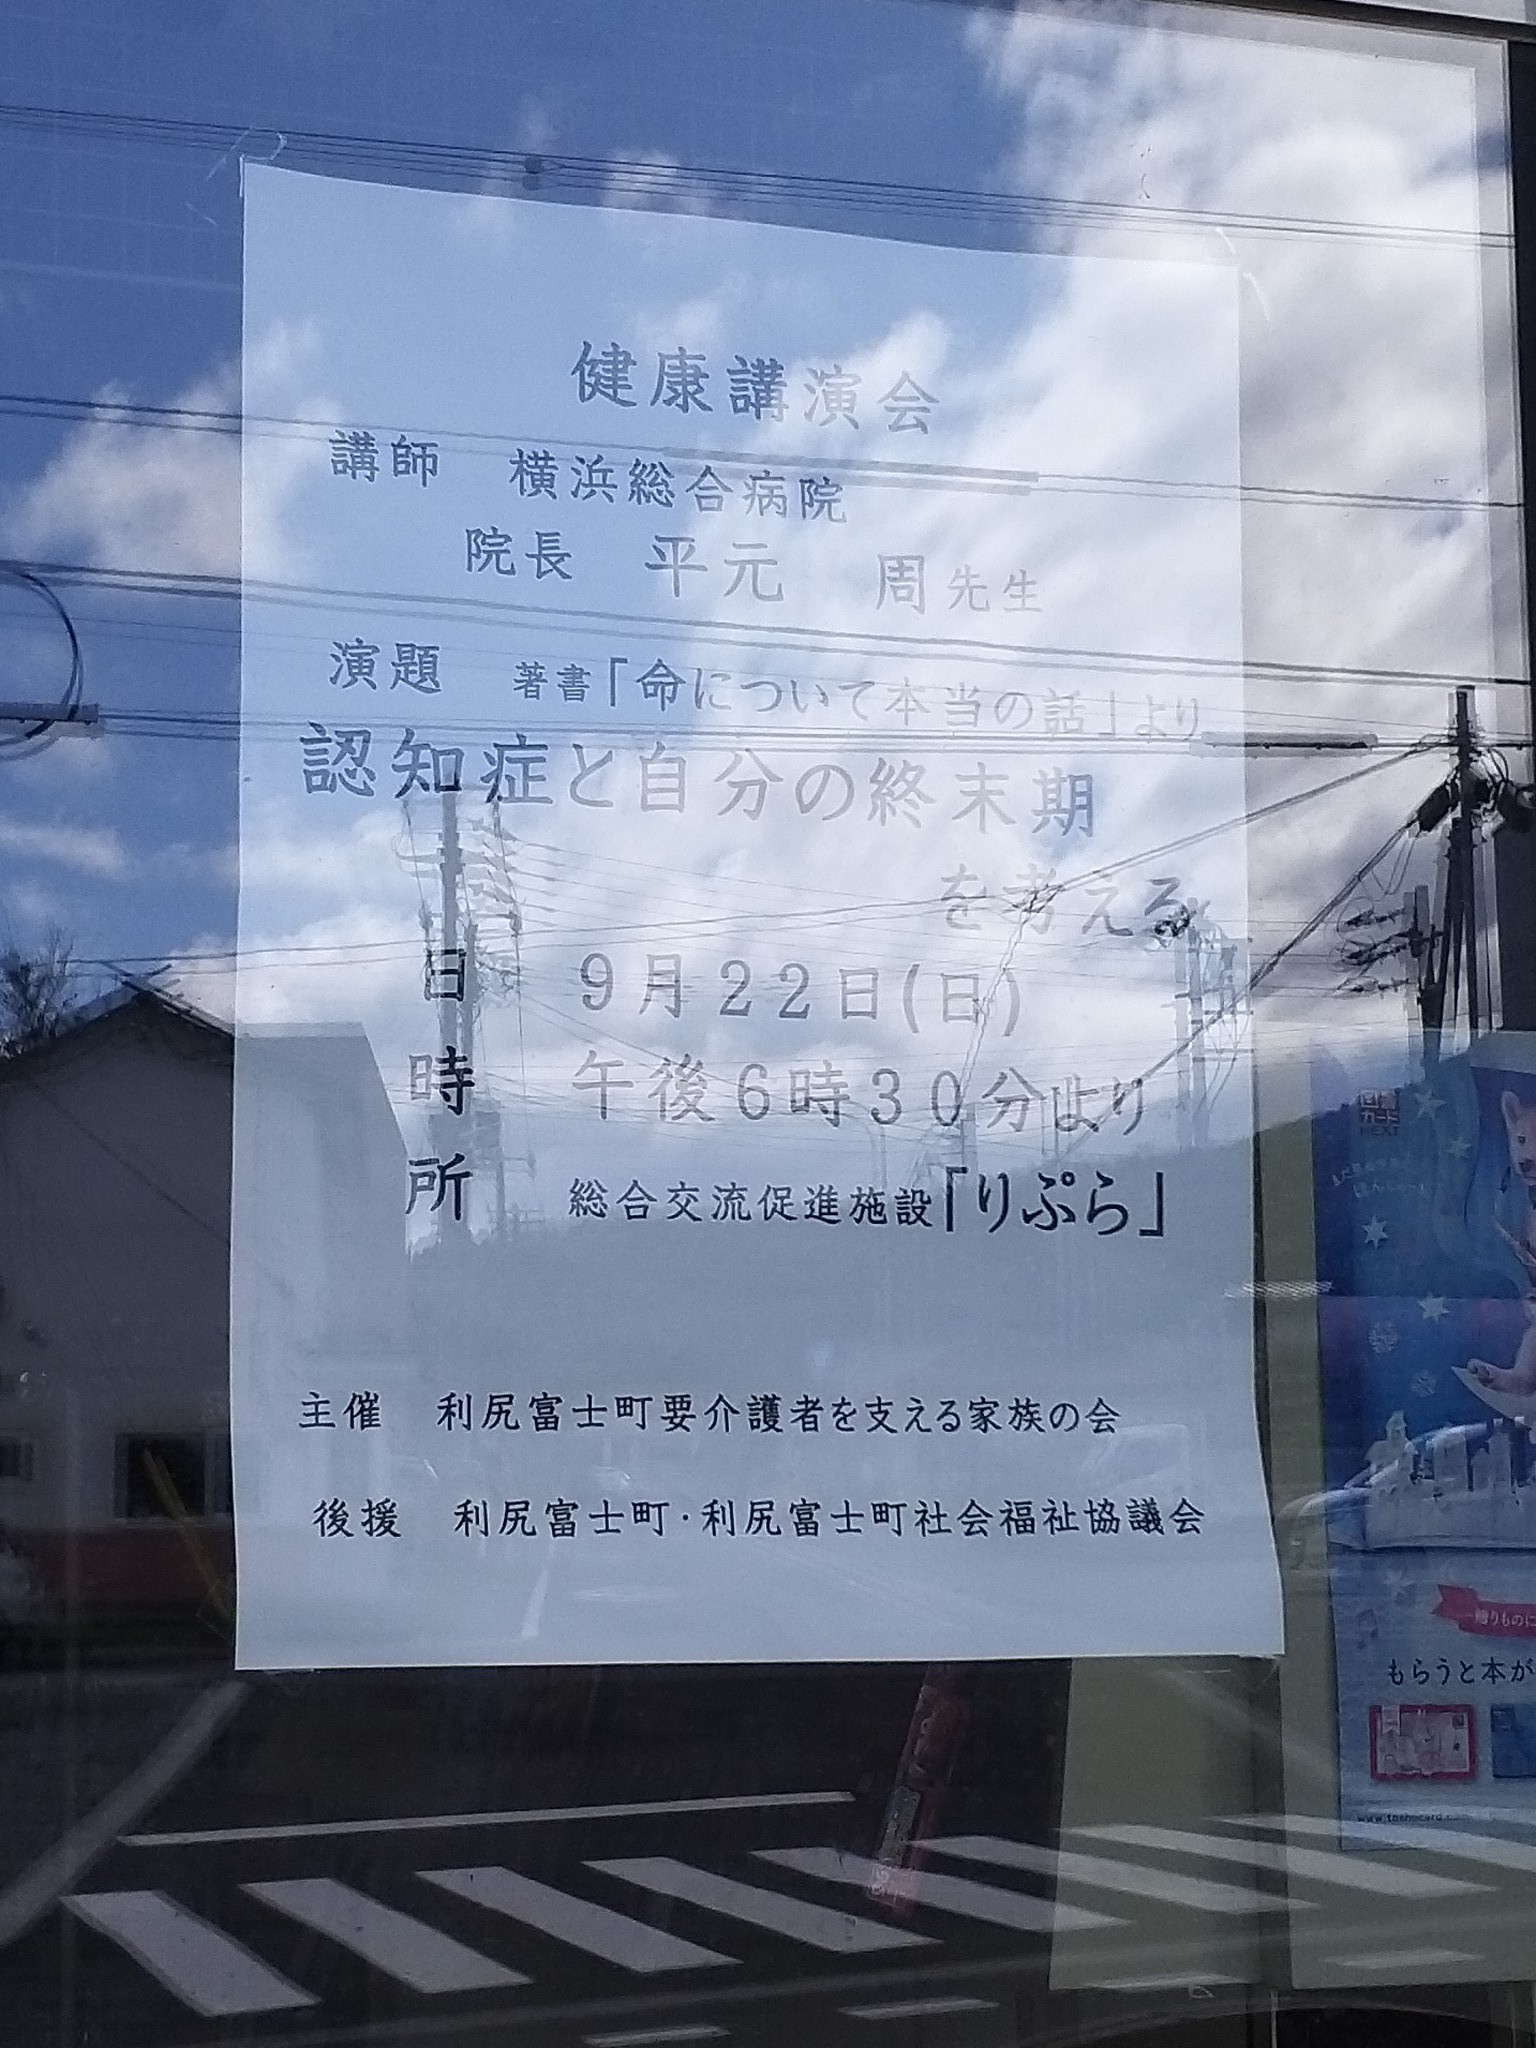 健康講演会
講師 横浜総合病院
院長 平元 周先生
演題 著書「命について本当の話」より
認知症と自分の終末期
を考える
日 9月22日(日)
時 午後6時30分より
所 総合交流促進施設「りぷら」
主催 利尻富士町要介護者を支える家族の会
後援 利尻富士町・利尻富士町社会福祉協議会
図書
カード
NEXT
贈りものに
もらうと本が